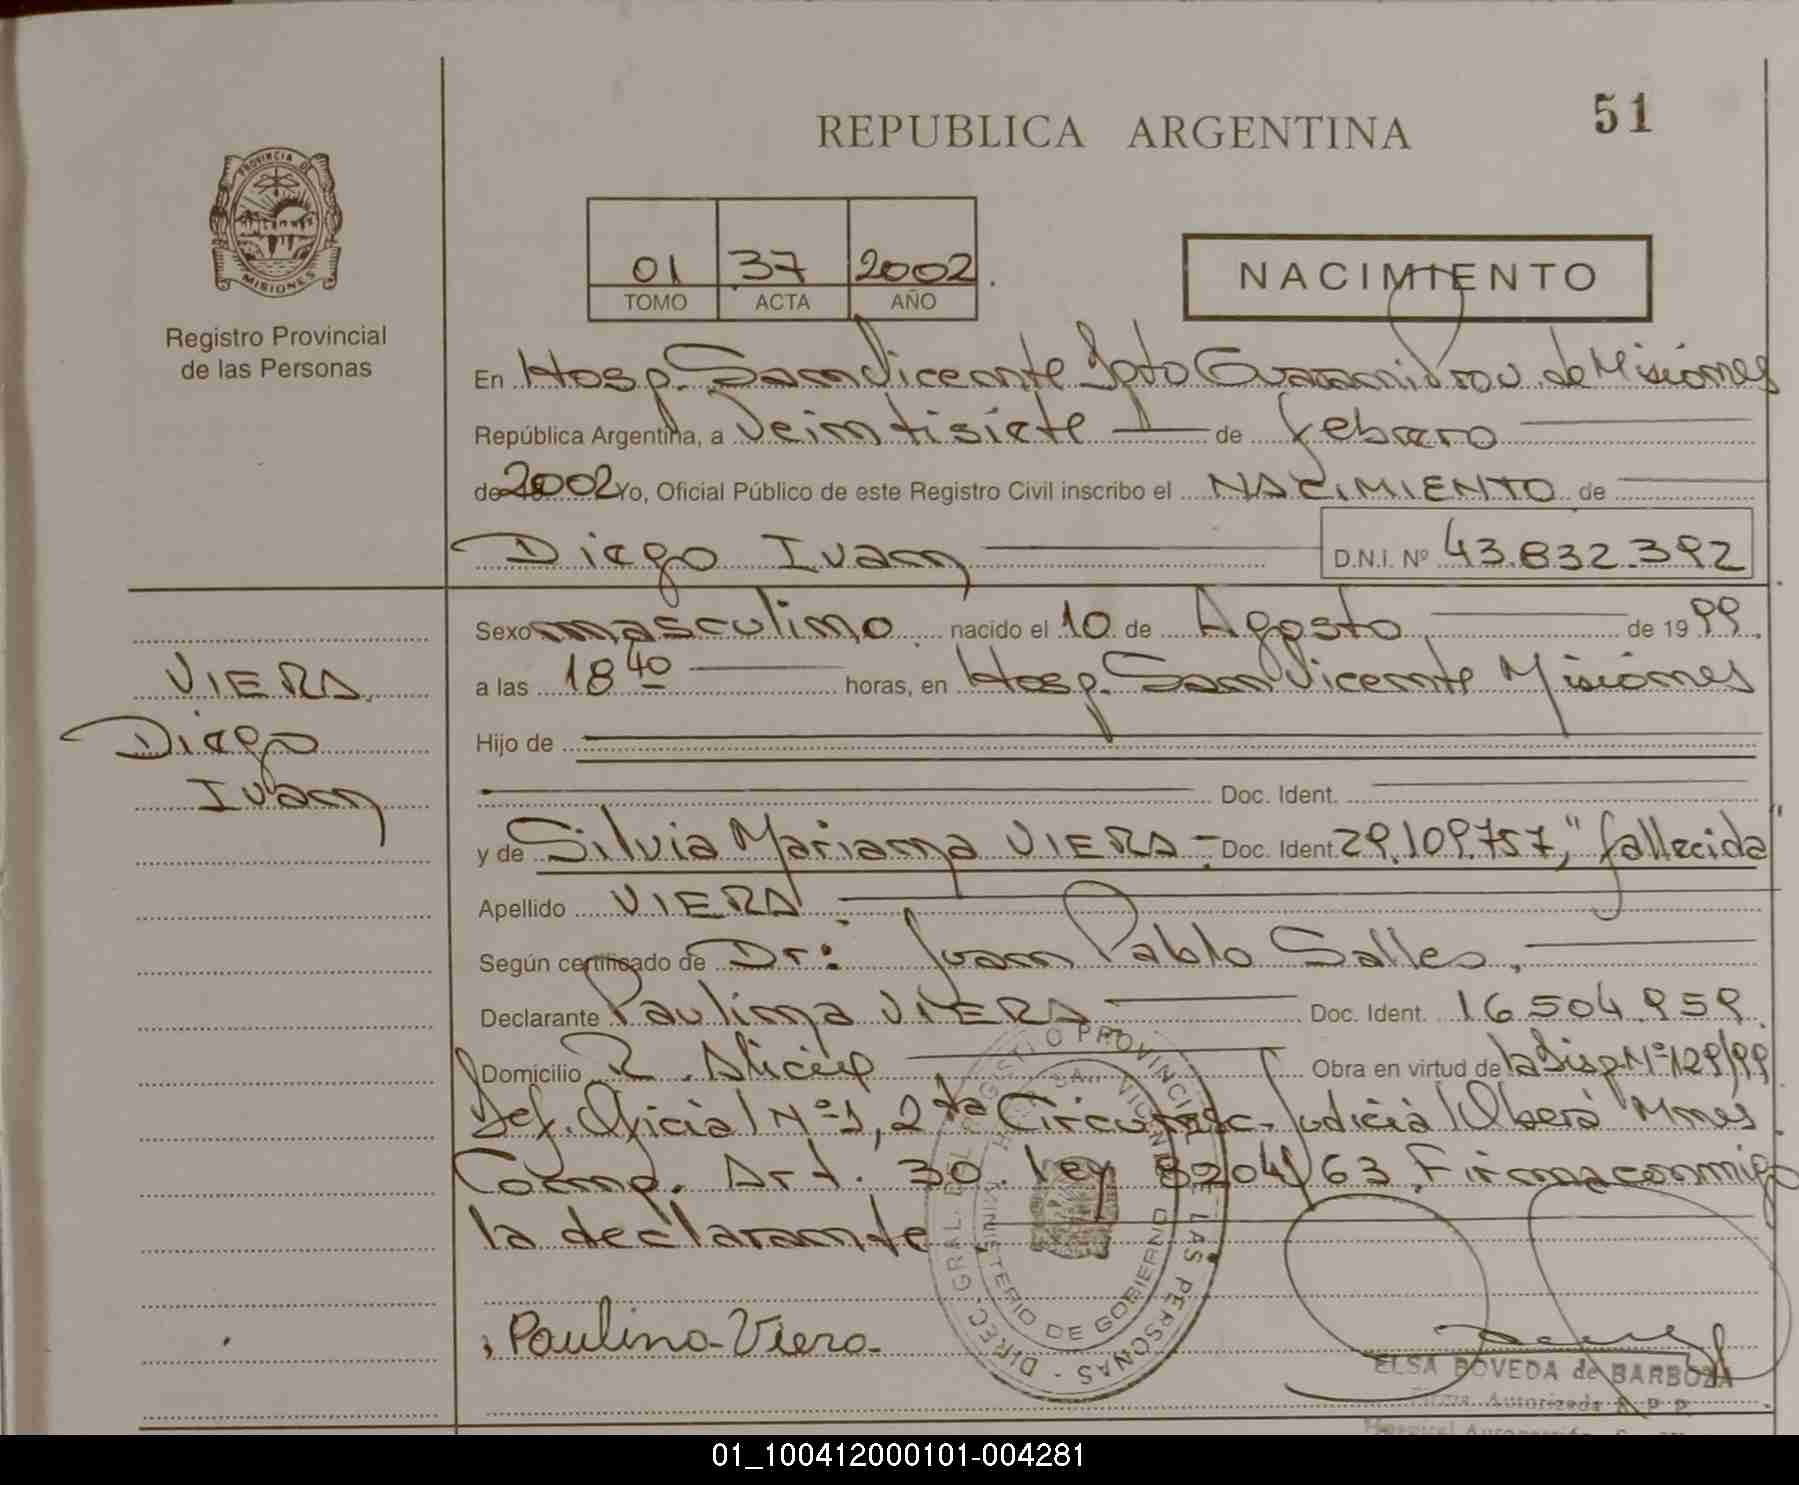 51
REPUBLICA ARGENTINA
PROVINCIA DE
MISIONES
Registro Provincial
de las Personas
01 37 2002
TOMO ACTA AÑO
NACIMIENTO
En Hosp. San Vicente Dpto Guarani Prov. de Misiones
República Argentina, a Veintisiete de febrero
de 2002 Yo, Oficial Público de este Registro Civil inscribo el NACIMIENTO de
Diego Ivan D.N.I. Nº 43.832.392
Sexo masculino nacido el 10 de Agosto de 1999
a las 18 40 horas, en Hosp. San Vicente Misiones
Hijo de
Doc. Ident.
y de Silvia Mariana VIERA Doc. Ident. 29.109.757, "fallecida"
Apellido VIERA
Según certificado de Dr: Juan Pablo Salles,
Declarante Paulina VIERA Doc. Ident. 16.504.959
Domicilio Obra en virtud de la Disp Nº 129/99
Def. Oficial Nº 1, 2da Circunsc. Judicial Oberá Mnes
Comp. Art. 30 ley 8204/63. Firma conmigo
la declarante
Paulina Viera
VIERA
Diego
Ivan
DIREC. GRAL. DEL REGISTRO PROVINCIAL DE LAS PERSONAS
MINISTERIO DE GOBIERNO
ELSA BOVEDA de BARBOZA
Firma Autorizada R.P.P.
01_100412000101-004281